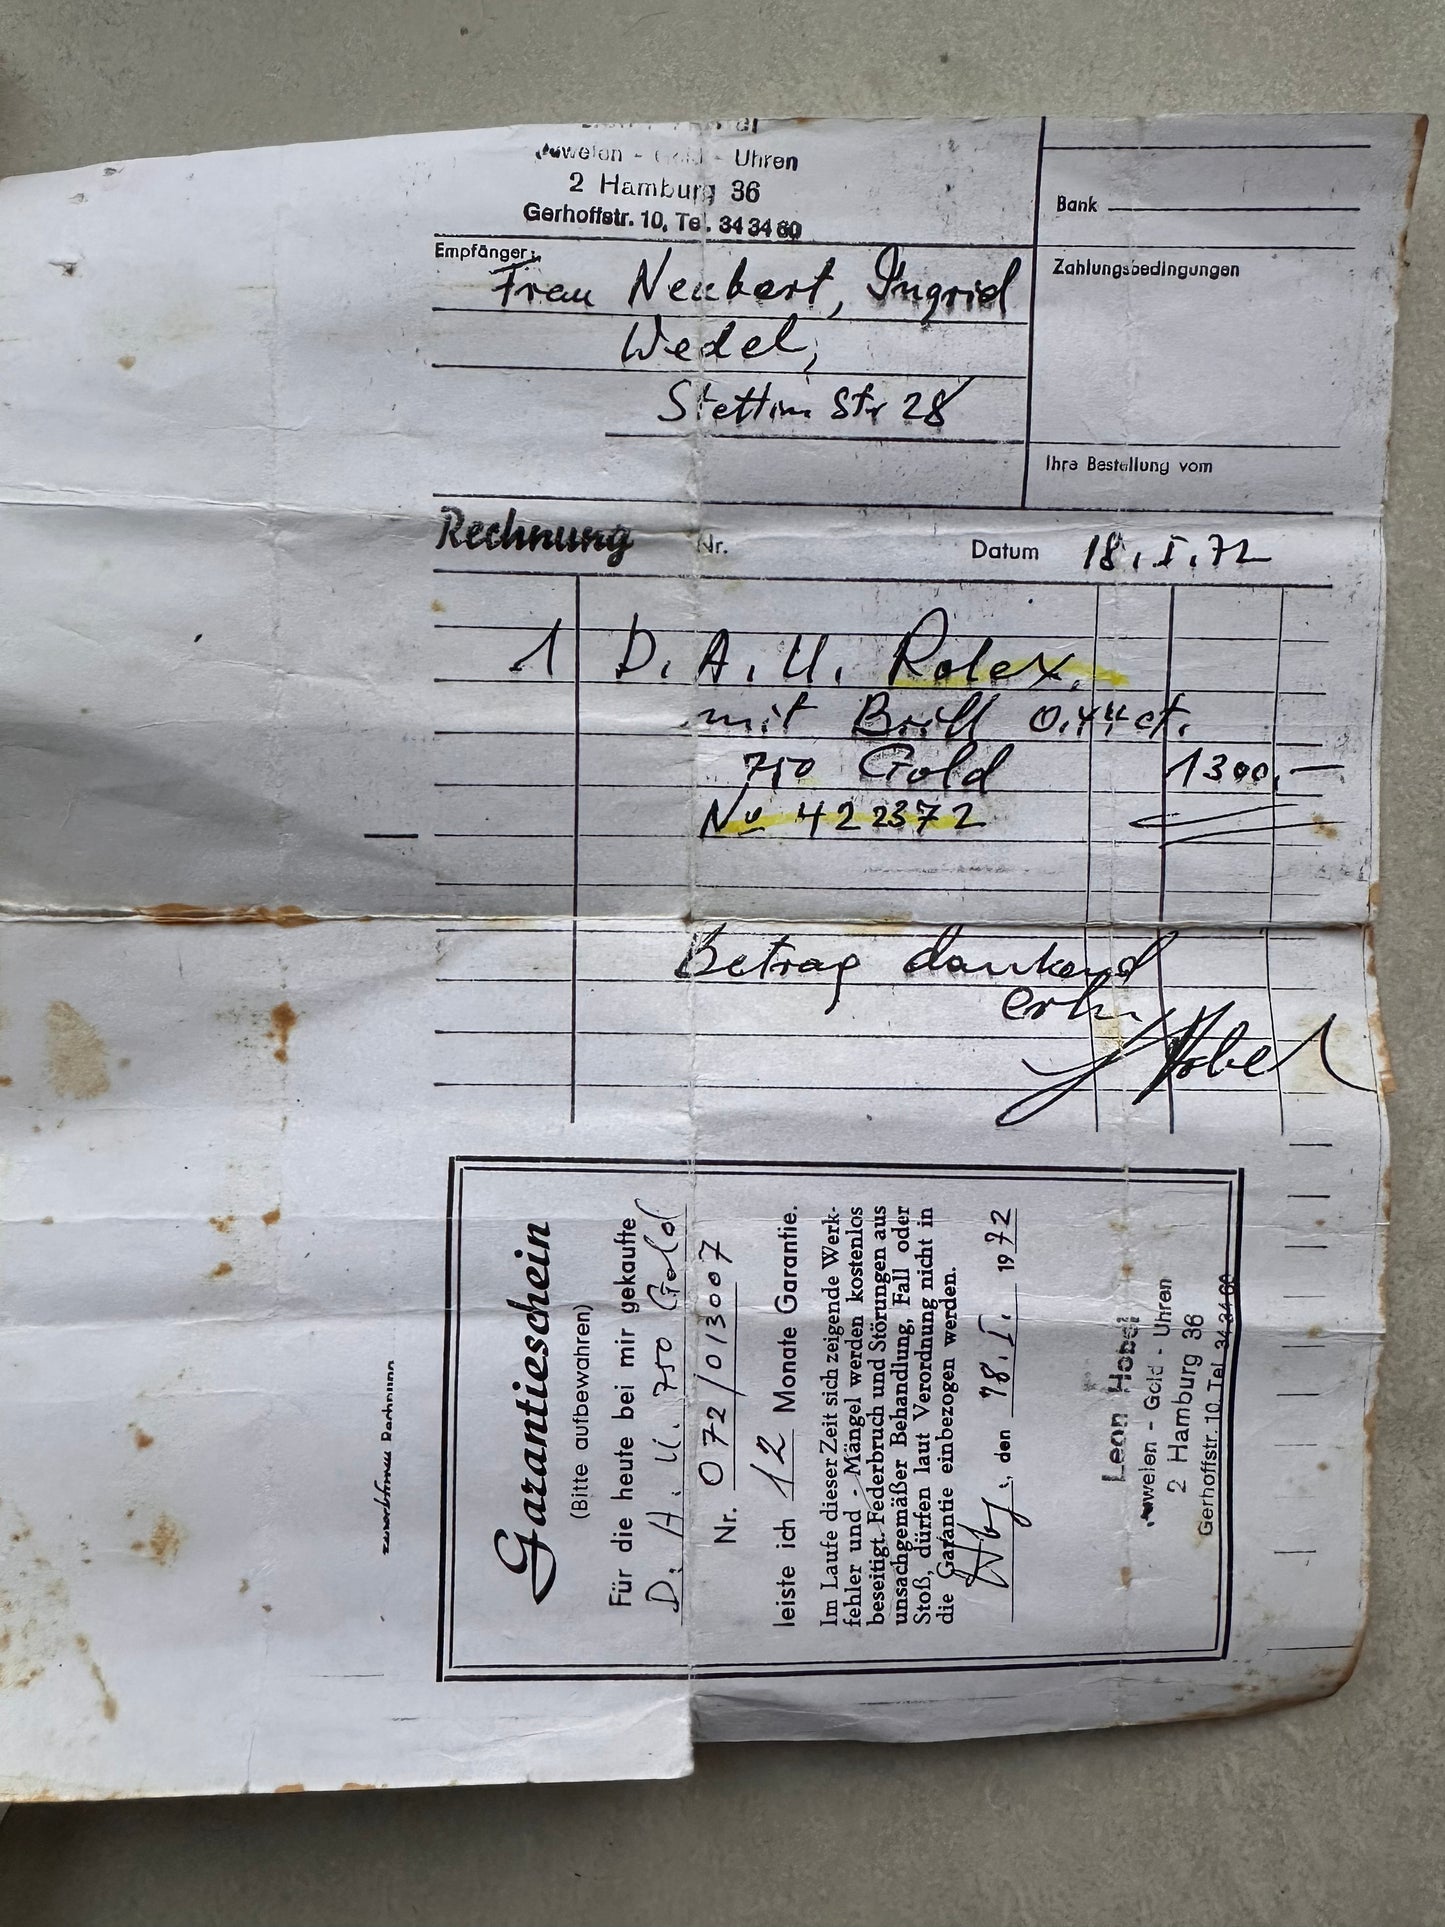 Juwelen - Gold - Uhren
2 Hamburg 36
Gerhoffstr. 10, Tel. 34 34 60
Bank
Empfänger:
Zahlungsbedingungen
Frau Neubert, Ingrid
Wedel,
Stettin Str 28
Ihre Bestellung vom
Rechnung Nr. Datum 18. I. 72
1 D. A. U. Rolex.
mit Brill 0.44 ct.
750 Gold 1300,—
No 422372
Betrag dankend
erh.
Hobel
Garantieschein
(Bitte aufbewahren)
Für die heute bei mir gekaufte
D. A. U. 750 Gold
Nr. 072/013007
leiste ich 12 Monate Garantie.
Im Laufe dieser Zeit sich zeigende Werk-
fehler und - Mängel werden kostenlos
beseitigt. Federbruch und Störungen aus
unsachgemäßer Behandlung, Fall oder
Stoß, dürfen laut Verordnung nicht in
die Garantie einbezogen werden.
Hbg., den 18. I. 1972
Leon Hobel
Juwelen - Gold - Uhren
2 Hamburg 36
Gerhoffstr. 10, Tel. 34 34 60